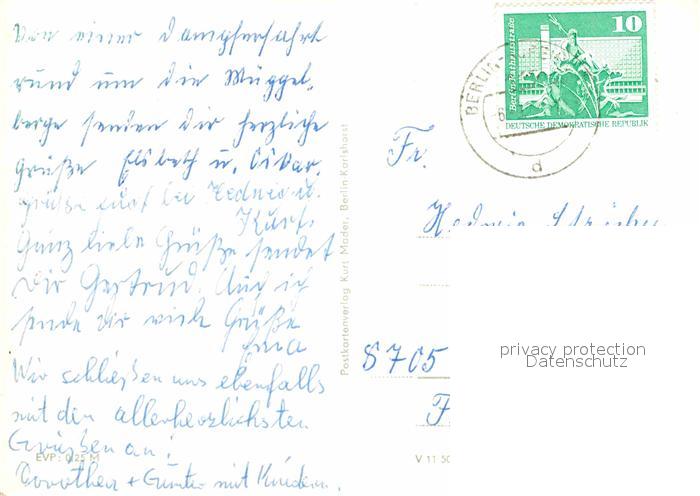 Von einer Dampferfahrt
rund um die Müggel-
berge senden dir herzliche
Grüße Elsbeth u. Oskar.
Grüße auch bei Hedwig u.
Kurt.
Ganz liebe Grüße sendet
Dir Gertrud. Auch ich
sende dir viele Grüße
Erna
Wir schließen uns ebenfalls
mit den allerherzlichsten
Grüßen an!
Dorothea + Günter mit Kindern.
EVP: 0,25 M
Postkartenverlag Kurt Mader, Berlin Karlshorst
10
Berlin Rathausstraße
DEUTSCHE DEMOKRATISCHE REPUBLIK
BERLIN
d
Fr.
Hedwig
8705
F
V 11 50
privacy protection
Datenschutz